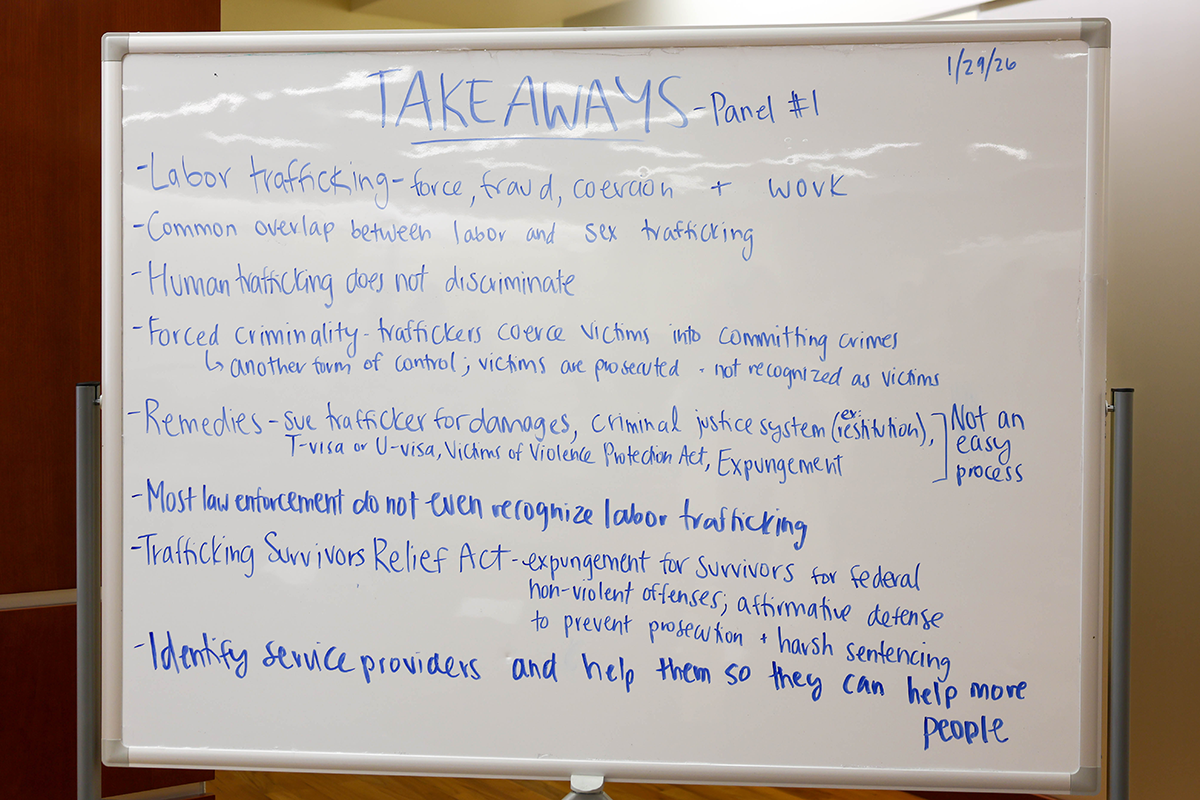 1/29/26
TAKEAWAYS - Panel #1
- Labor trafficking - force, fraud, coercion + work
- Common overlap between labor and sex trafficking
- Human trafficking does not discriminate
- Forced criminality - traffickers coerce victims into committing crimes
↳ another form of control; victims are prosecuted - not recognized as victims
- Remedies - sue trafficker for damages, criminal justice system (ex: restitution),
T-visa or U-visa, Victims of Violence Protection Act, Expungement
] Not an
easy
process
- Most law enforcement do not even recognize labor trafficking
- Trafficking Survivors Relief Act - expungement for survivors for federal
non-violent offenses; affirmative defense
to prevent prosecution + harsh sentencing
- Identify service providers and help them so they can help more
people